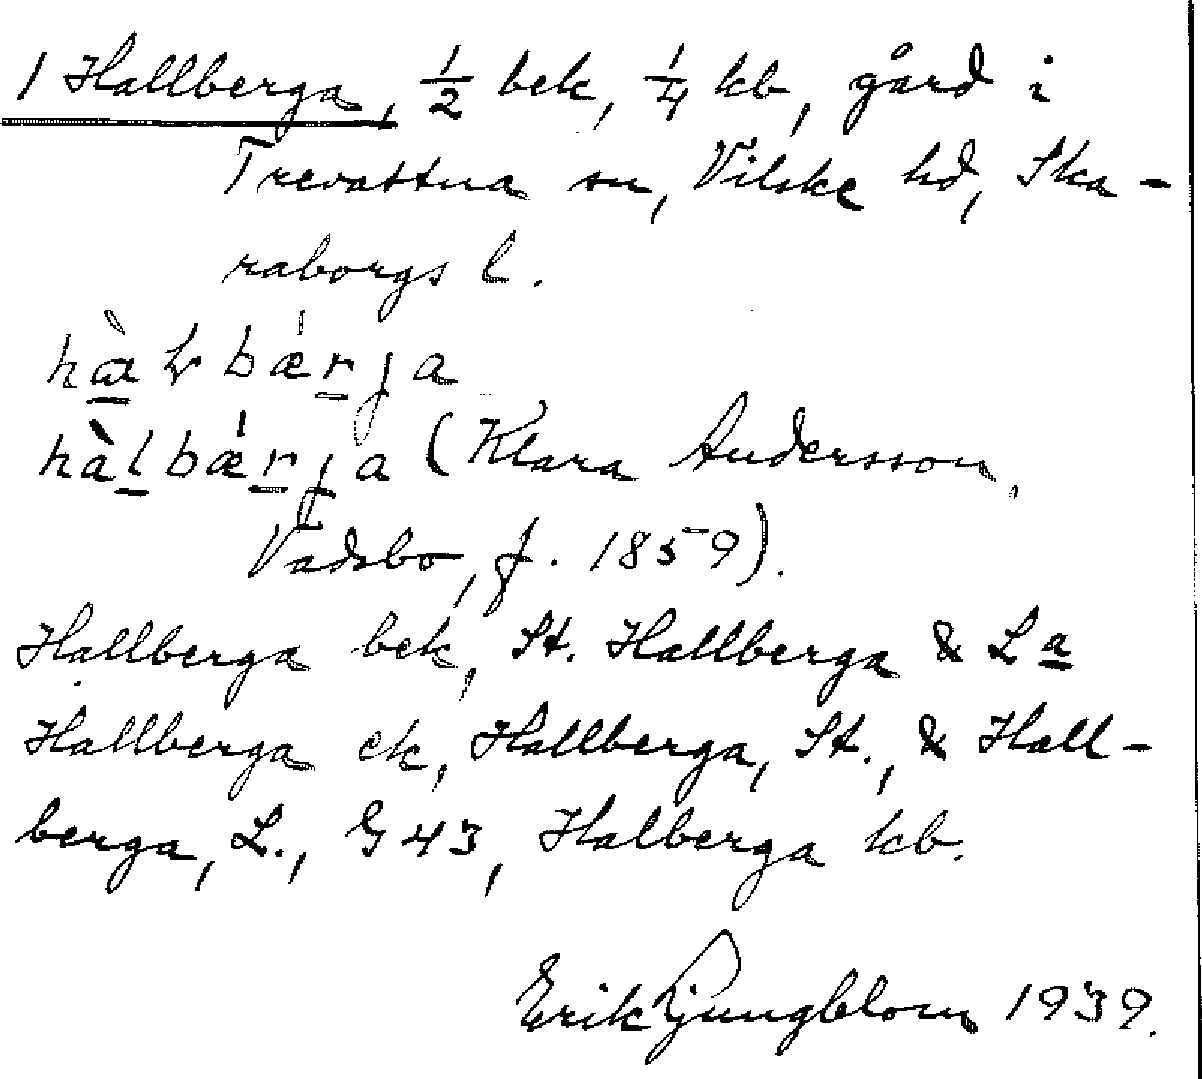 1 Hallberga, 1/2 bek, 1/4 kb, gård i
Trevattna sn, Vilske hd, Ska-
raborgs l.
(Klara Andersson,
Vadsbo, f. 1859).
Hallberga bek, St. Hallberga & La
Hallberga ek, Hallberga, St., & Hall-
berga, L., G 43, Halberga kb.
Erik Ljungblom 1939.